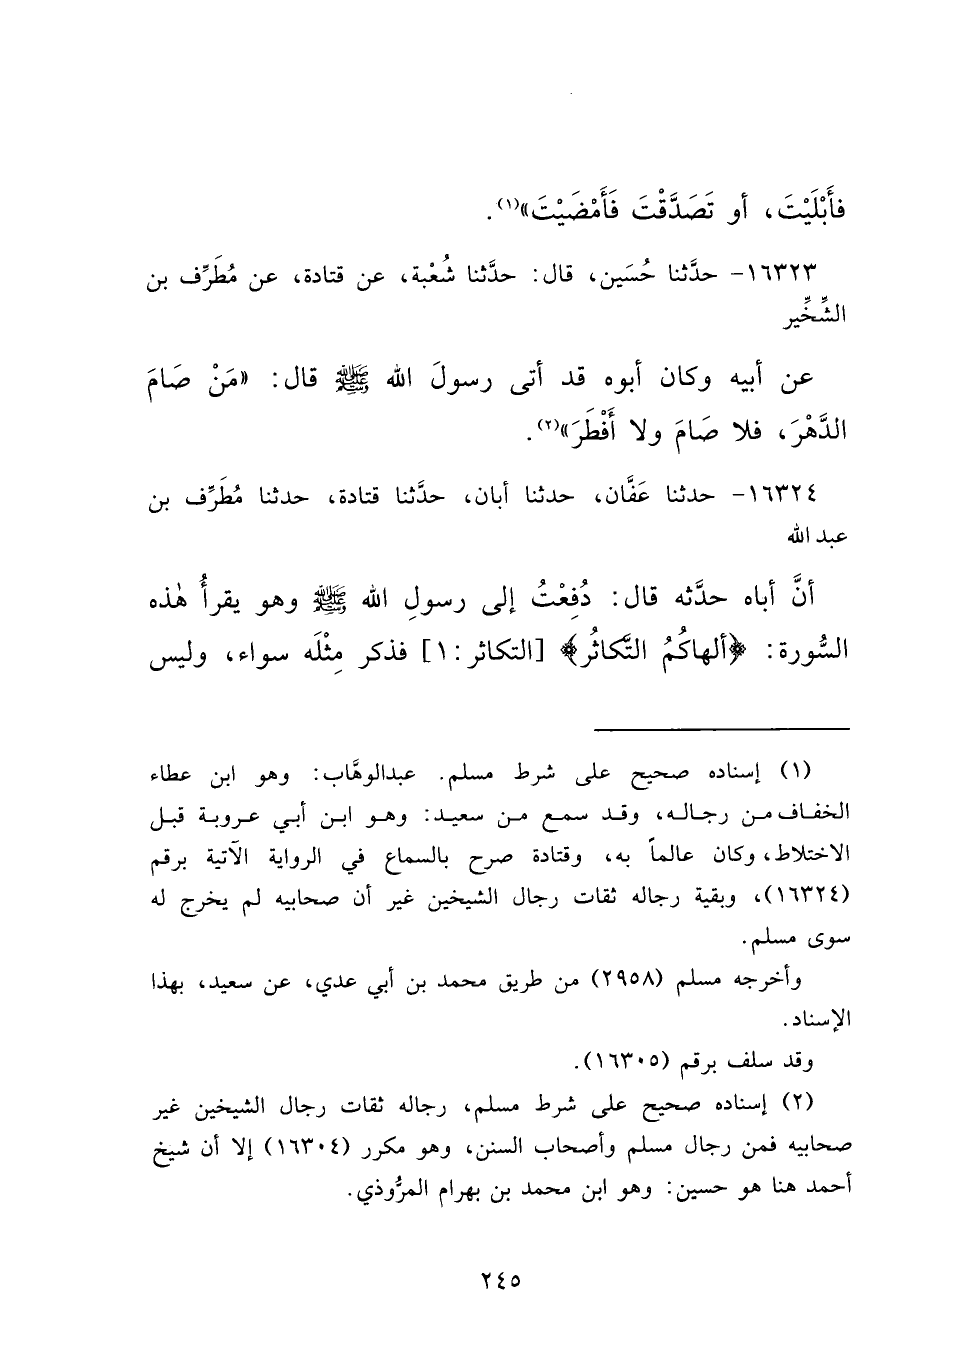 فأَبْلَيْتَ، أو تَصَدَّقْتَ فَأَمْضَيْتَ»(١).
١٦٣٢٣- حدَّثنا حُسَين، قال: حدَّثنا شُعْبة، عن قتادة، عن مُطَرِّف بن
الشِّخِّير
عن أبيه وكان أبوه قد أتى رسولَ الله ﷺ قال: «مَنْ صَامَ
الدَّهْرَ، فلا صَامَ ولا أَفْطَرَ»(٢).
١٦٣٢٤- حدثنا عَفَّان، حدثنا أبان، حدَّثنا قتادة، حدثنا مُطَرِّف بن
عبد الله
أنَّ أباه حدَّثه قال: دُفِعْتُ إلى رسولِ الله ﷺ وهو يقرأُ هٰذه
السُّورة: ﴿ألهاكُمُ التَّكاثُر﴾ [التكاثر:١] فذكر مِثْلَه سواء، وليس
(١) إسناده صحيح على شرط مسلم. عبدالوهَّاب: وهو ابن عطاء
الخفاف من رجاله، وقد سمع من سعيد: وهو ابن أبي عروبة قبل
الاختلاط، وكان عالماً به، وقتادة صرح بالسماع في الرواية الآتية برقم
(١٦٣٢٤)، وبقية رجاله ثقات رجال الشيخين غير أن صحابيه لم يخرج له
سوى مسلم.
وأخرجه مسلم (٢٩٥٨) من طريق محمد بن أبي عدي، عن سعيد، بهذا
الإسناد.
وقد سلف برقم (١٦٣٠٥).
(٢) إسناده صحيح على شرط مسلم، رجاله ثقات رجال الشيخين غير
صحابيه فمن رجال مسلم وأصحاب السنن، وهو مكرر (١٦٣٠٤) إلا أن شيخ
أحمد هنا هو حسين: وهو ابن محمد بن بهرام المرُّوذي.
٢٤٥